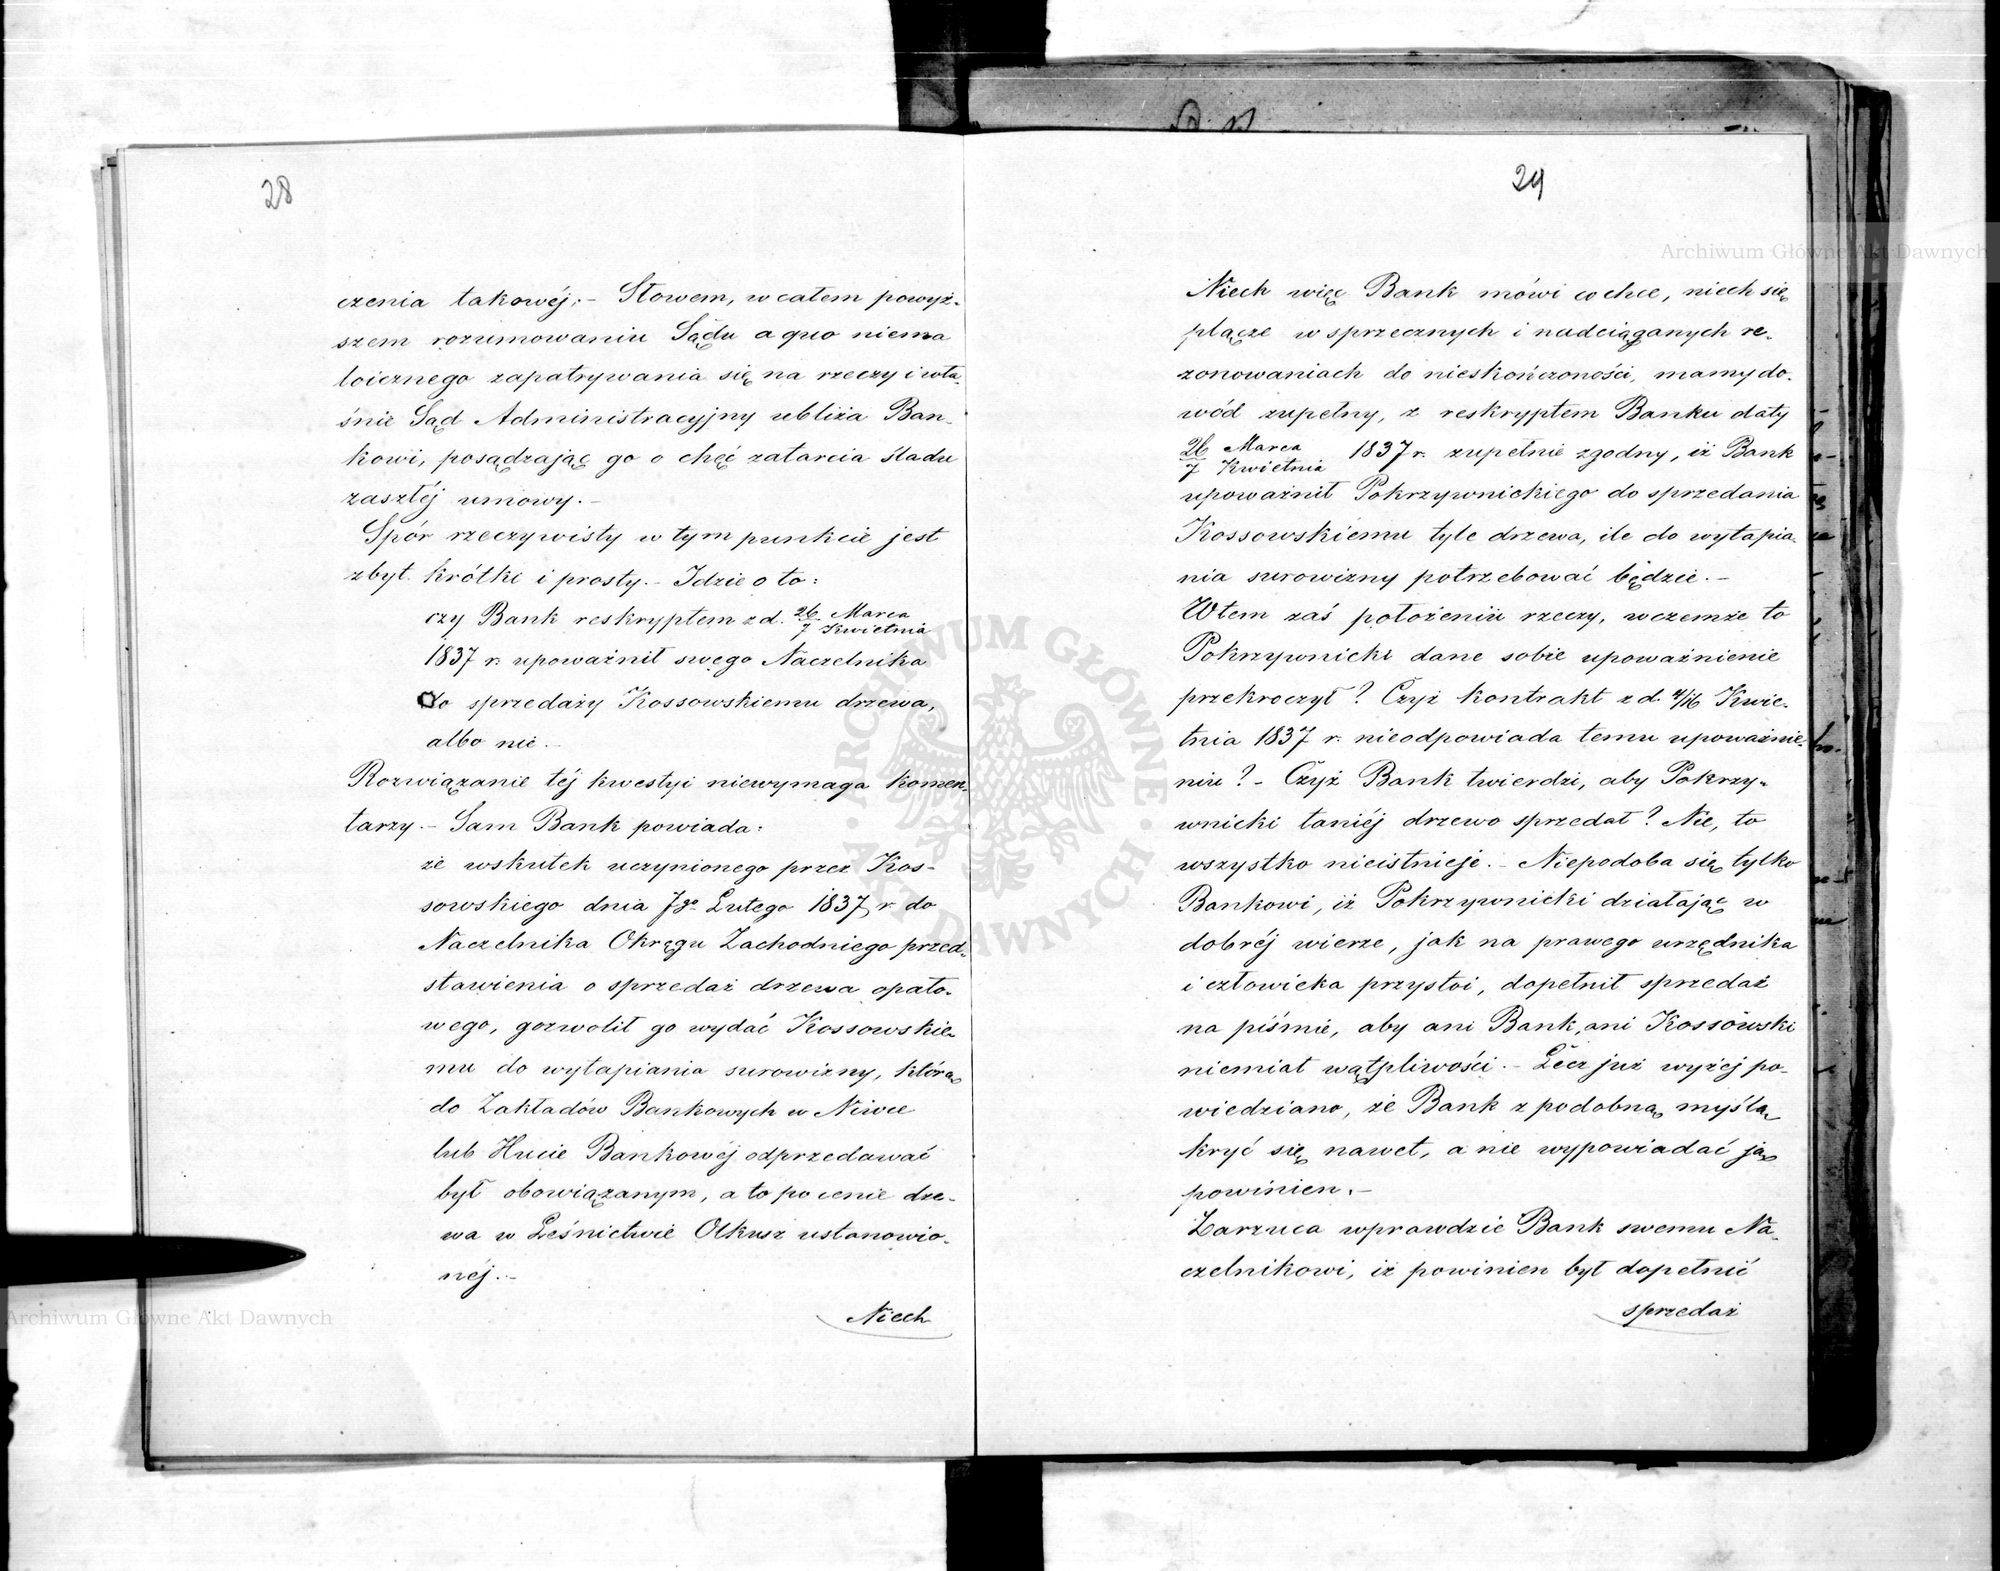 28
czenia takowéj; – Słowem, w całem powyż-
szem rozumowaniu Sądu a quo niema
loicznego zapatrywania się na rzeczy i wła-
śnie Sąd Administracyjny ubliża Ban-
kowi, posądzając go o chęć zatarcia śladu
zaszłéj umowy. –
Spór rzeczywisty w tym punkcie jest
zbyt krótki i prosty. – Idzie o to:
czy Bank reskryptem z d. 26 Marca / 7 Kwietnia
1837 r. upoważnił swego Naczelnika
do sprzedaży Kossowskiemu drzewa,
albo nie. –
Rozwiązanie téj kwestyi niewymaga komen-
tarzy. – Sam Bank powiada:
że wskutek uczynionego przez Kos-
sowskiego dnia 7go Lutego 1837 r. do
Naczelnika Okręgu Zachodniego przed-
stawienia o sprzedaż drzewa opało-
wego, pozwolił go wydać Kossowskie-
mu do wytapiania surowizny, którą
do Zakładów Bankowych w Niwce
lub Hucie Bankowéj odprzedawać
był obowiązanym, a to po cenie drze-
wa w Leśnictwie Olkusz ustanowio-
néj. –
Niech
29
Niech więc Bank mówi co chce, niech się
plącze w sprzecznych i nadciąganych re-
zonowaniach do nieskończoności, mamy do-
wód zupełny, z reskryptem Banku daty
26 Marca / 7 Kwietnia 1837 r. zupełnie zgodny, iż Bank
upoważnił Pokrzywnickiego do sprzedania
Kossowskiemu tyle drzewa, ile do wytapia-
nia surowizny potrzebować będzie. –
W tem zaś położeniu rzeczy, w czemże to
Pokrzywnicki dane sobie upoważnienie
przekroczył? Czyż kontrakt z d. 4/16 Kwie-
tnia 1837 r. nieodpowiada temu upoważnie-
niu? – Czyż Bank twierdzi, aby Pokrzy-
wnicki taniéj drzewo sprzedał? Nie, to
wszystko nieistnieje. – Niepodoba się tylko
Bankowi, iż Pokrzywnicki działając w
dobréj wierze, jak na prawego urzędnika
i człowieka przystoi, dopełnił sprzedaż
na piśmie, aby ani Bank, ani Kossowski
niemiał wątpliwości. – Lecz już wyżéj po-
wiedziano, że Bank z podobną myślą
kryć się nawet, a nie wypowiadać ją
powinien. –
Zarzuca wprawdzie Bank swemu Na-
czelnikowi, iż powinien był dopełnić
sprzedaż
Archiwum Główne Akt Dawnych
Archiwum Główne Akt Dawnych
ARCHIWUM GŁÓWNE AKT DAWNYCH